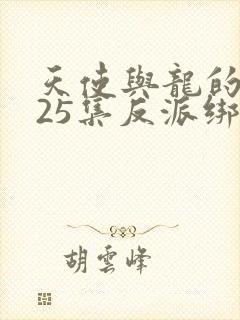 天使與龍的
25集反派綁
胡雲峰